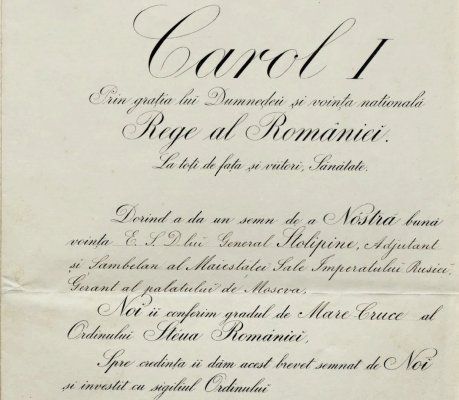 Carol I
Prin grația lui Dumnezeu și voința natională
Rege al României.
La toți de fața și viitori, Sănătate.
Dorind a da un semn de a Nostră bună
voința E. S. Dlui General Stolipine, Adjutant
și Șambelan al Maiestăței Sale Imperatului Rusiei,
Gerant al palatului de Moscva,
Noi îi conferim gradul de Mare-Cruce al
Ordinului Steua României,
Spre credința îi dăm acest brevet semnat de Noi
și investit cu sigiliul Ordinului